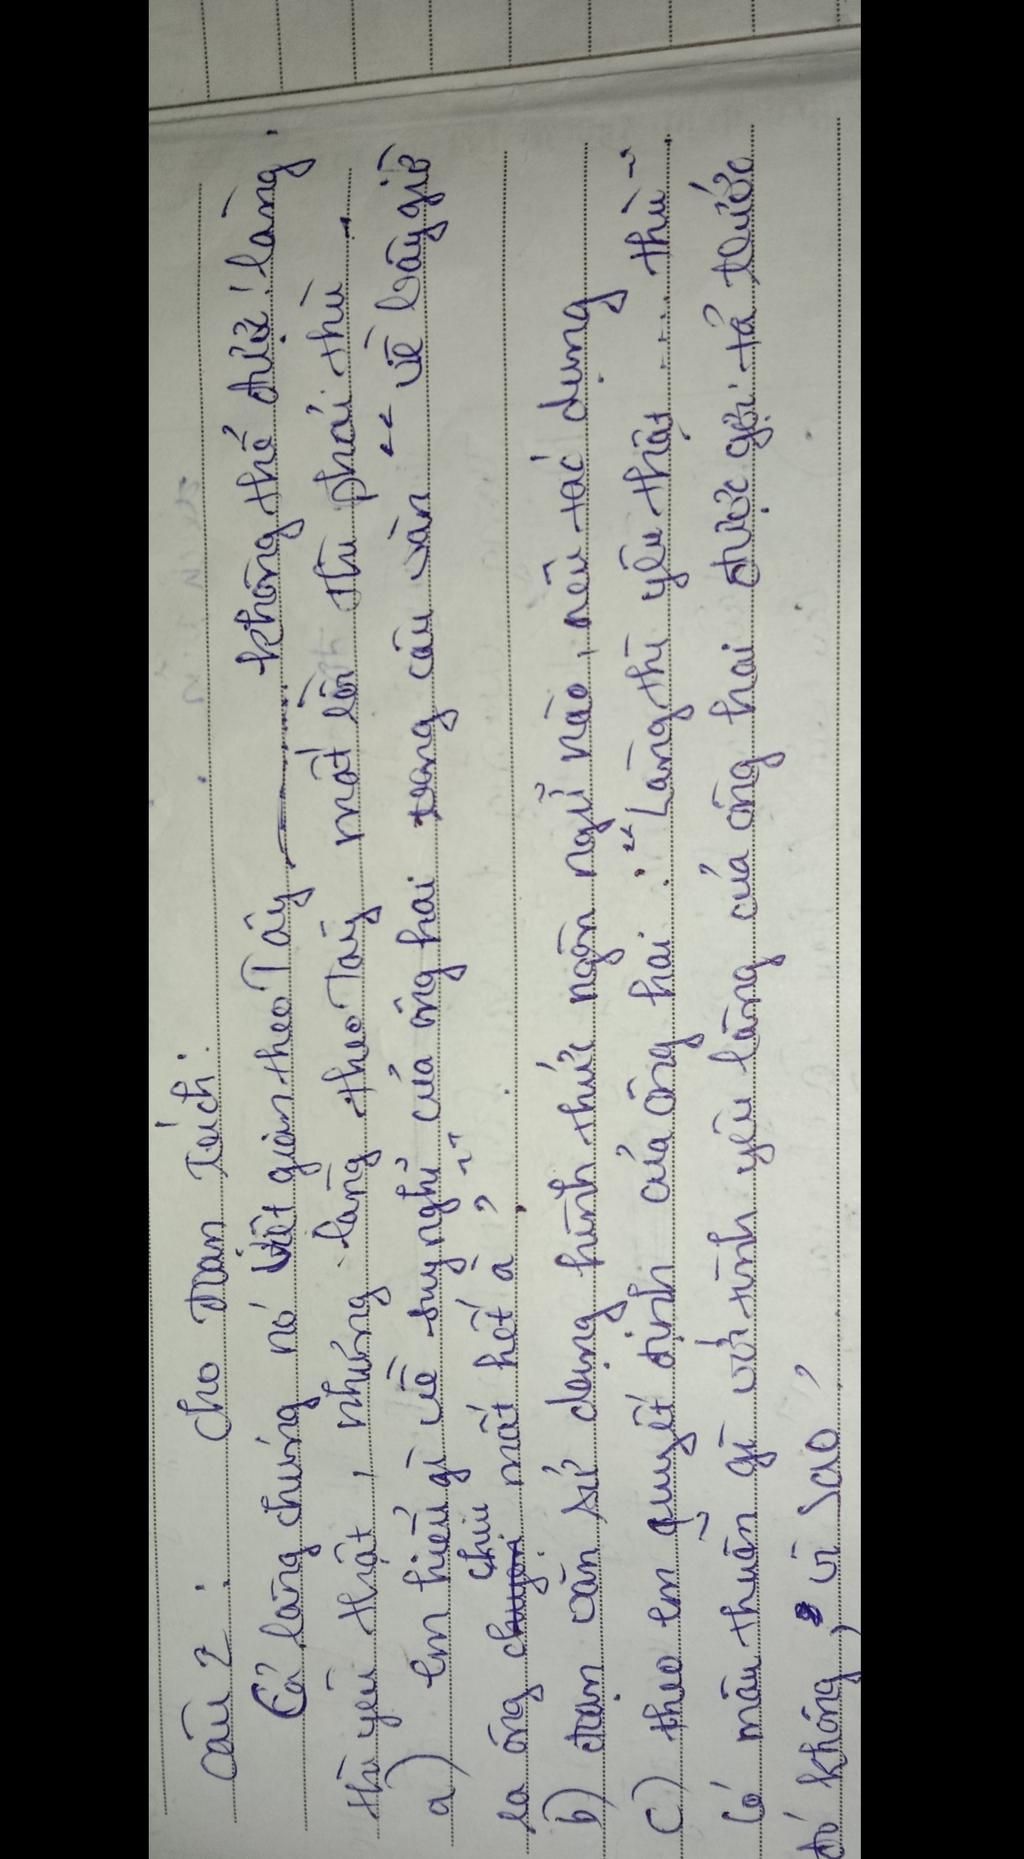 Câu 2 : cho Đoạn Trích:
Cả làng chúng nó Việt gian theo Tây ........ không thể được! làng
thì yêu thật, nhưng làng theo Tây mất rồi thì phải thù.
a) em hiểu gì về suy nghĩ của ông hai trong câu văn " về bây giờ
ra ông chịu mất hết à? "
b) đoạn văn sử dụng hình thức ngôn ngữ nào, nêu tác dụng
c) theo em quyết định của ông hai : " Làng thì yêu thật .... thù "
có mâu thuẫn gì với tình yêu làng của ông hai được gợi tả trước
đó không, vì sao?